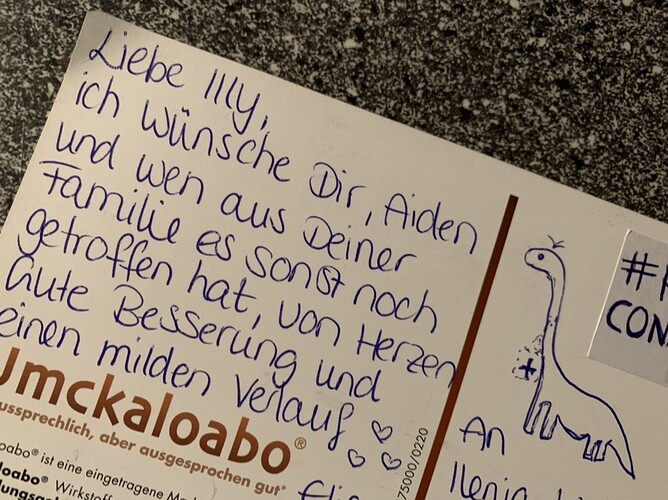 Liebe Illy,
ich wünsche Dir, Aiden
und wen aus Deiner
Familie es sonst noch
getroffen hat, von Herzen
Gute Besserung und
einen milden Verlauf ♡♡♡
Umckaloabo®
ussprechlich, aber ausgesprochen gut*
oabo® ist eine eingetragene Ma
loabo® Wirkstoff
75000/0220
#
CON
An